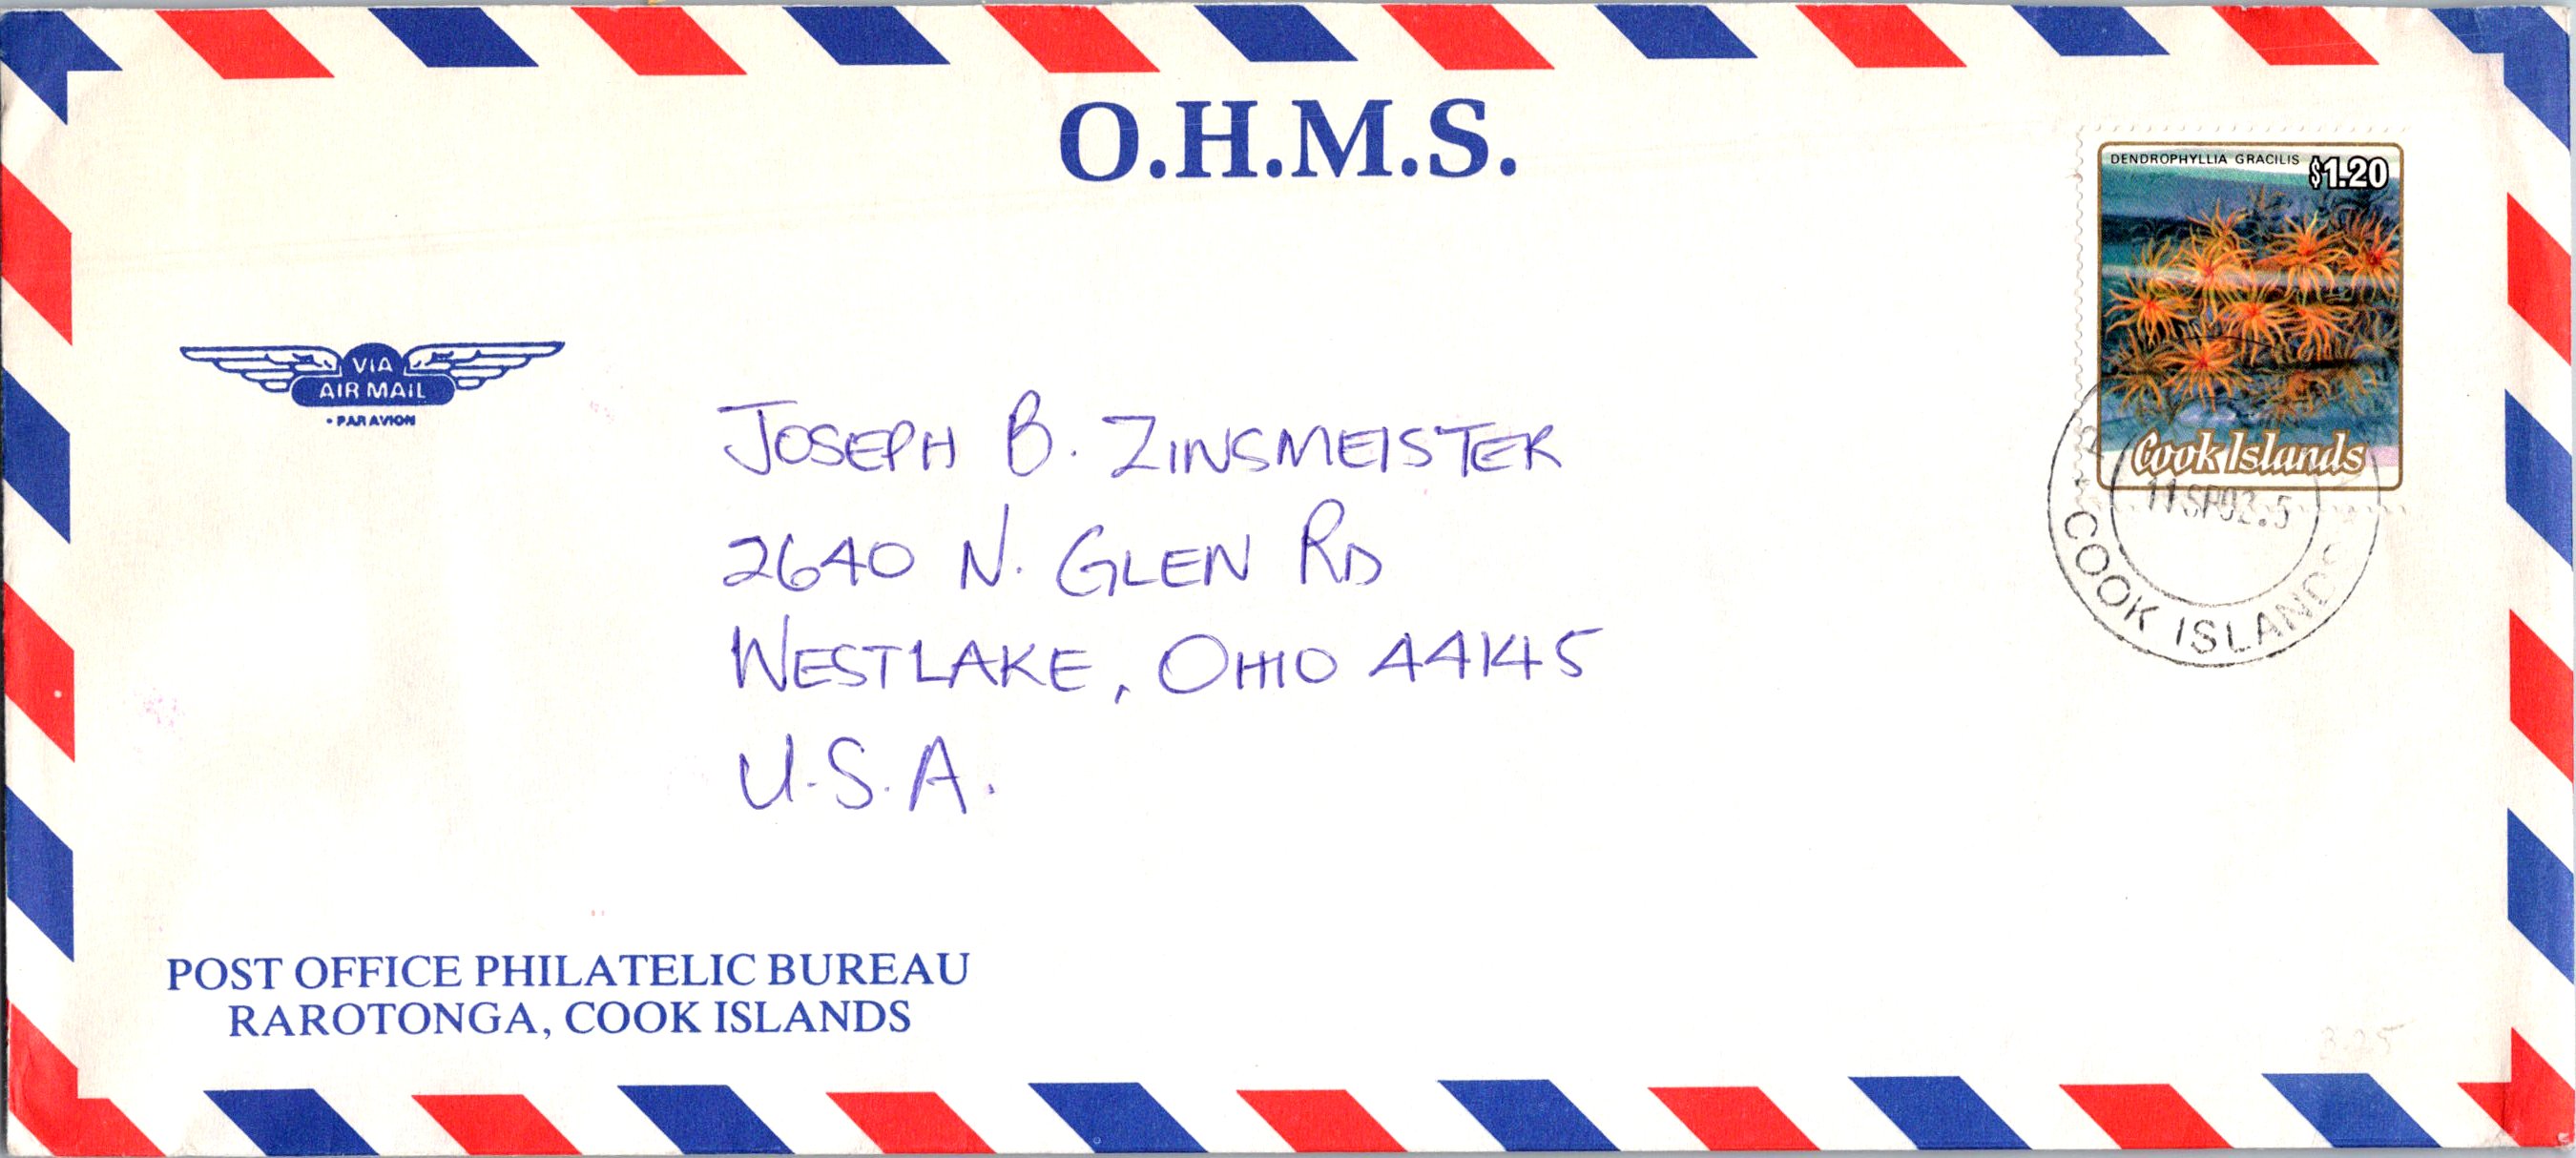 O.H.M.S.
DENDROPHYLLIA GRACILIS $1.20
VIA
AIR MAIL
• PAR AVION
Cook Islands
11SP02.5
COOK ISLANDS
JOSEPH B. ZINSMEISTER
2640 N. GLEN RD
WESTLAKE, OHIO 44145
U.S.A.
POST OFFICE PHILATELIC BUREAU
RAROTONGA, COOK ISLANDS